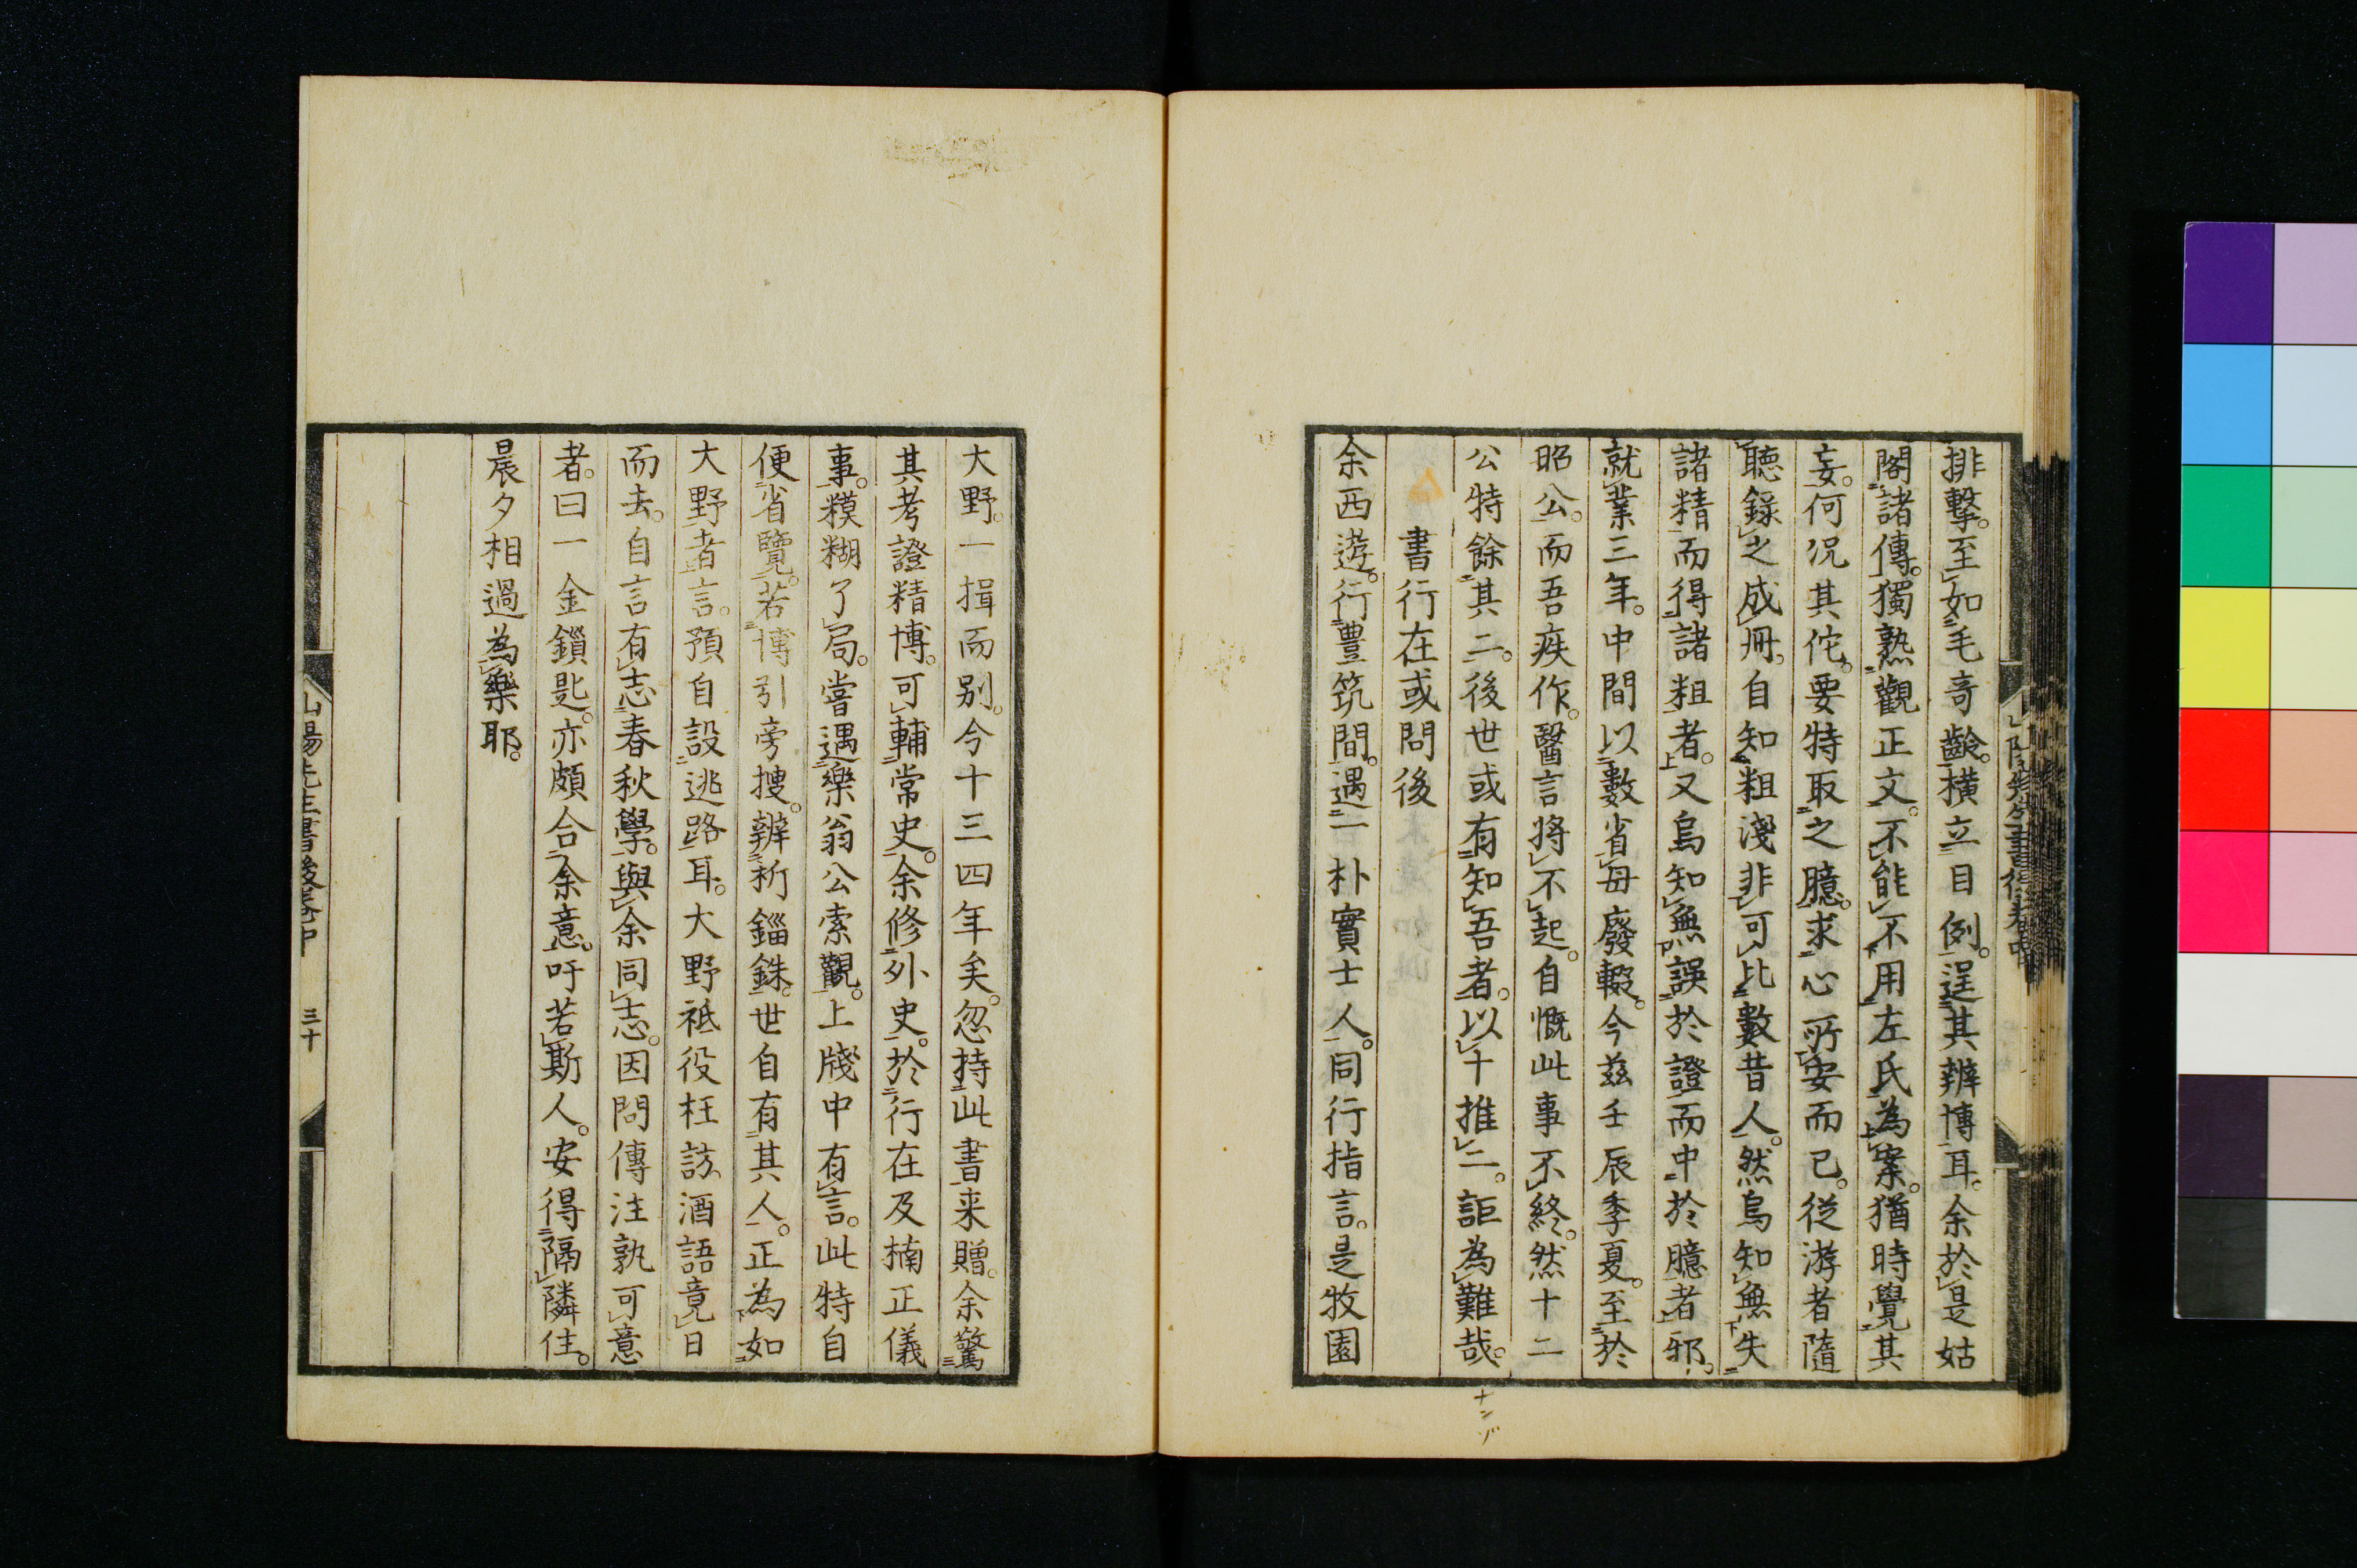 排擊。至如毛奇齡。橫立目例。逞其辨博耳。余於是姑
閣諸傳。獨熟觀正文。不能不用左氏為案。猶時覺其
妄。何況其佗。要特取之臆。求心所安而已。從游者隨
聽錄之成冊。自知粗淺非可比數昔人。然烏知無失
諸精而得諸粗者。又烏知無誤於證而中於臆者邪。
就業三年。中間以數省母廢輟。今茲壬辰季夏。至於
昭公。而吾疾作。醫言將不起。自慨此事不終。然十二
公特餘其二。後世或有知吾者。以十推二。詎為難哉。
ナンゾ
書行在或問後
余西遊。行豐筑間。遇一朴實士人。同行指言。是牧園
大野。一揖而別。今十三四年矣。忽持此書来贈。余驚
其考證精博。可輔常史。余修外史。於行在及楠正儀
事。糢糊了局。嘗遇樂翁公索觀。上牋中有言。此特自
便省覽。若博引旁搜。辨析錙銖。世自有其人。正為如
大野者言。預自設逃路耳。大野祗役枉訪。酒語竟日
而去。自言有志春秋學。與余同志。因問傳注孰可意
者。曰一金鎖匙。亦頗合余意。吁若斯人。安得隔隣住。
晨夕相過為樂耶。
山陽先生書後卷中 三十